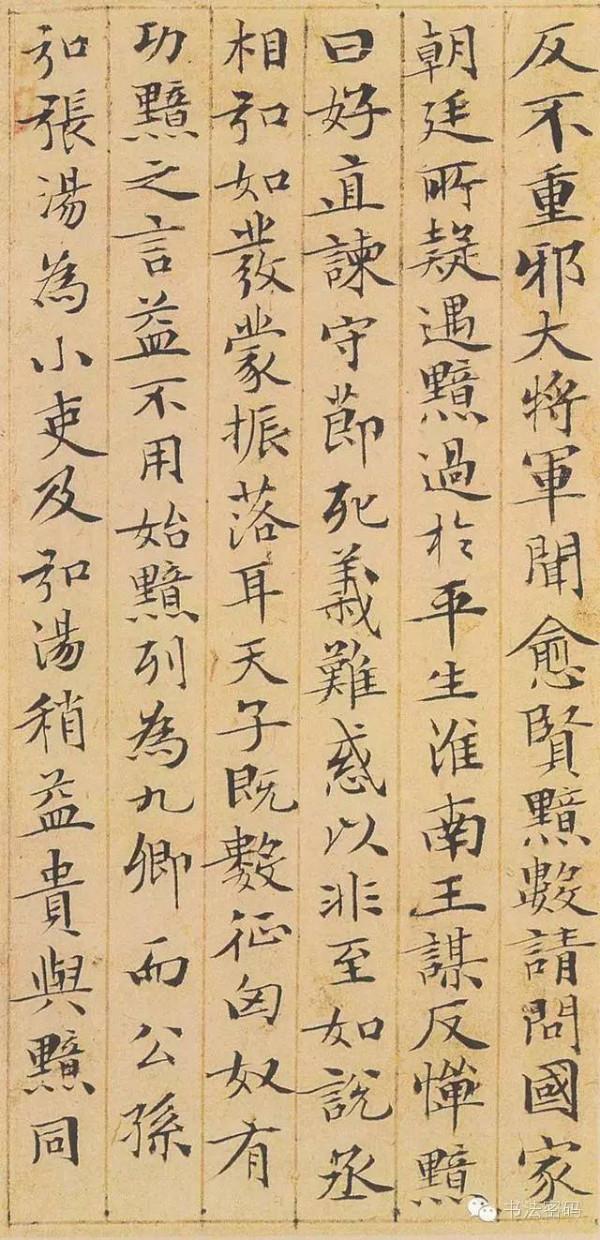 反不重邪大將軍聞愈賢黯數請問國家
朝廷所疑遇黯過於平生淮南王謀反憚黯
曰好直諫守節死義難惑以非至如說丞
相弘如發蒙振落耳天子既數征匈奴有
功黯之言益不用始黯列為九卿而公孫
弘張湯為小吏及弘湯稍益貴與黯同
书法密码